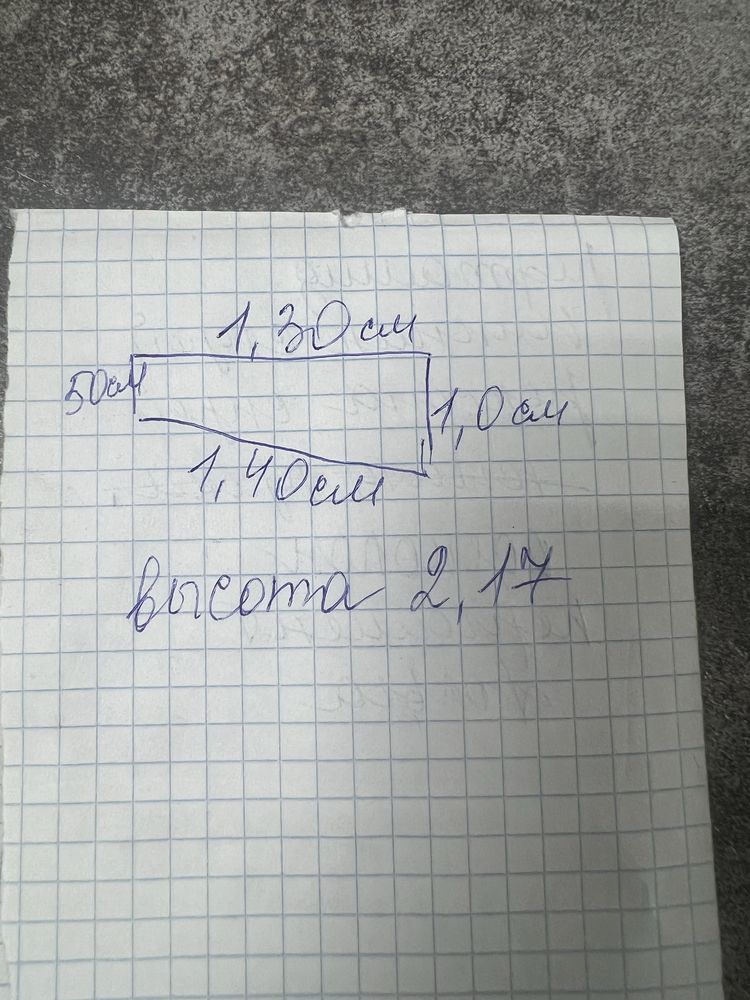 1,30см
50см
1,0см
1,40см
высота 2,17